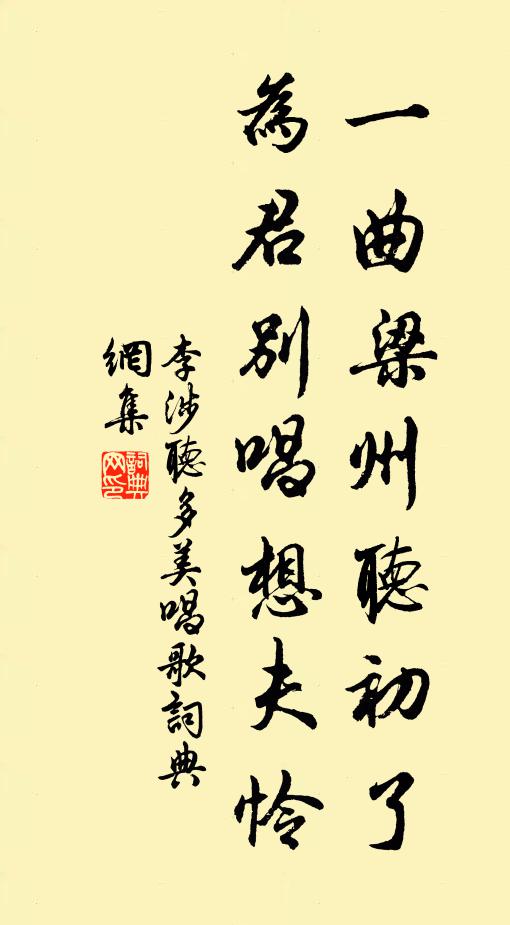 一曲梁州聽初了
為君別唱想夫怜
李涉聽多美唱歌詞典
網集
詞典
网印